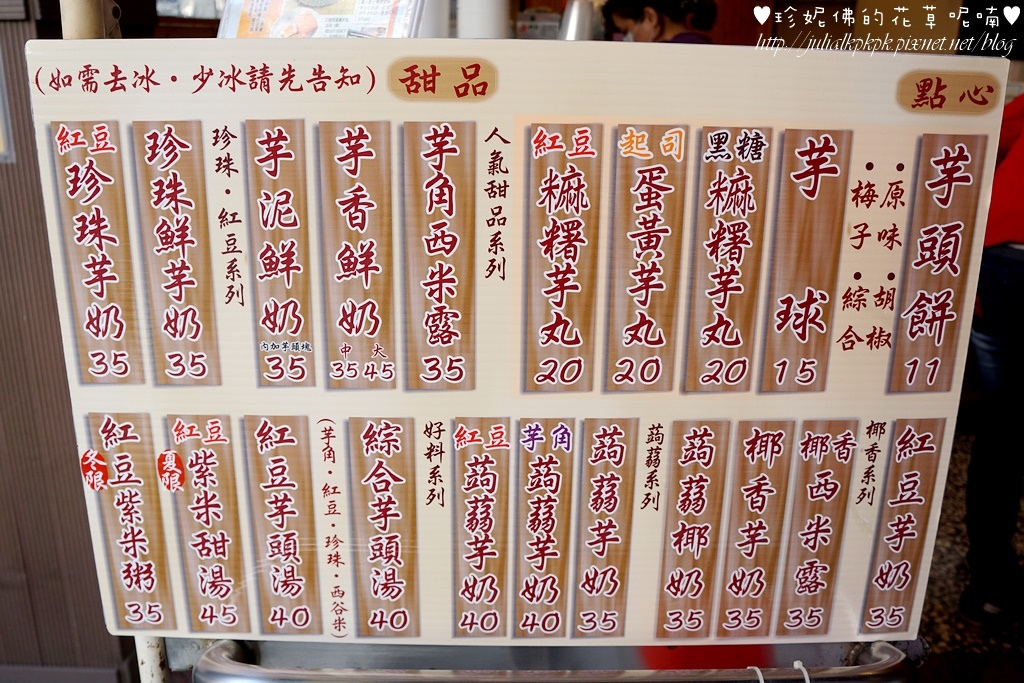 ♥珍妮佛的花草呢喃♥
http://julialkpkpk.pixnet.net/blog
(如需去冰·少冰請先告知)
甜品
點心
芋頭餅
11
·原味·胡椒
·梅子·綜合
芋球
15
黑糖
麻糬芋丸
20
起司
蛋黃芋丸
20
紅豆
麻糬芋丸
20
人氣甜品系列
芋角西米露
35
芋香鮮奶
中 大
35 45
芋泥鮮奶
內加芋頭塊
35
珍珠·紅豆系列
珍珠鮮芋奶
35
紅豆
珍珠芋奶
35
紅豆芋奶
35
椰香系列
椰香
椰西米露
35
椰香芋奶
35
蒟蒻椰奶
35
蒟蒻系列
蒟蒻芋奶
35
芋角
蒟蒻芋奶
40
紅豆
蒟蒻芋奶
40
好料系列
綜合芋頭湯
40
(芋角·紅豆·珍珠·西谷米)
紅豆芋頭湯
40
紅豆
夏限
紫米甜湯
45
冬限
紅豆紫米粥
35